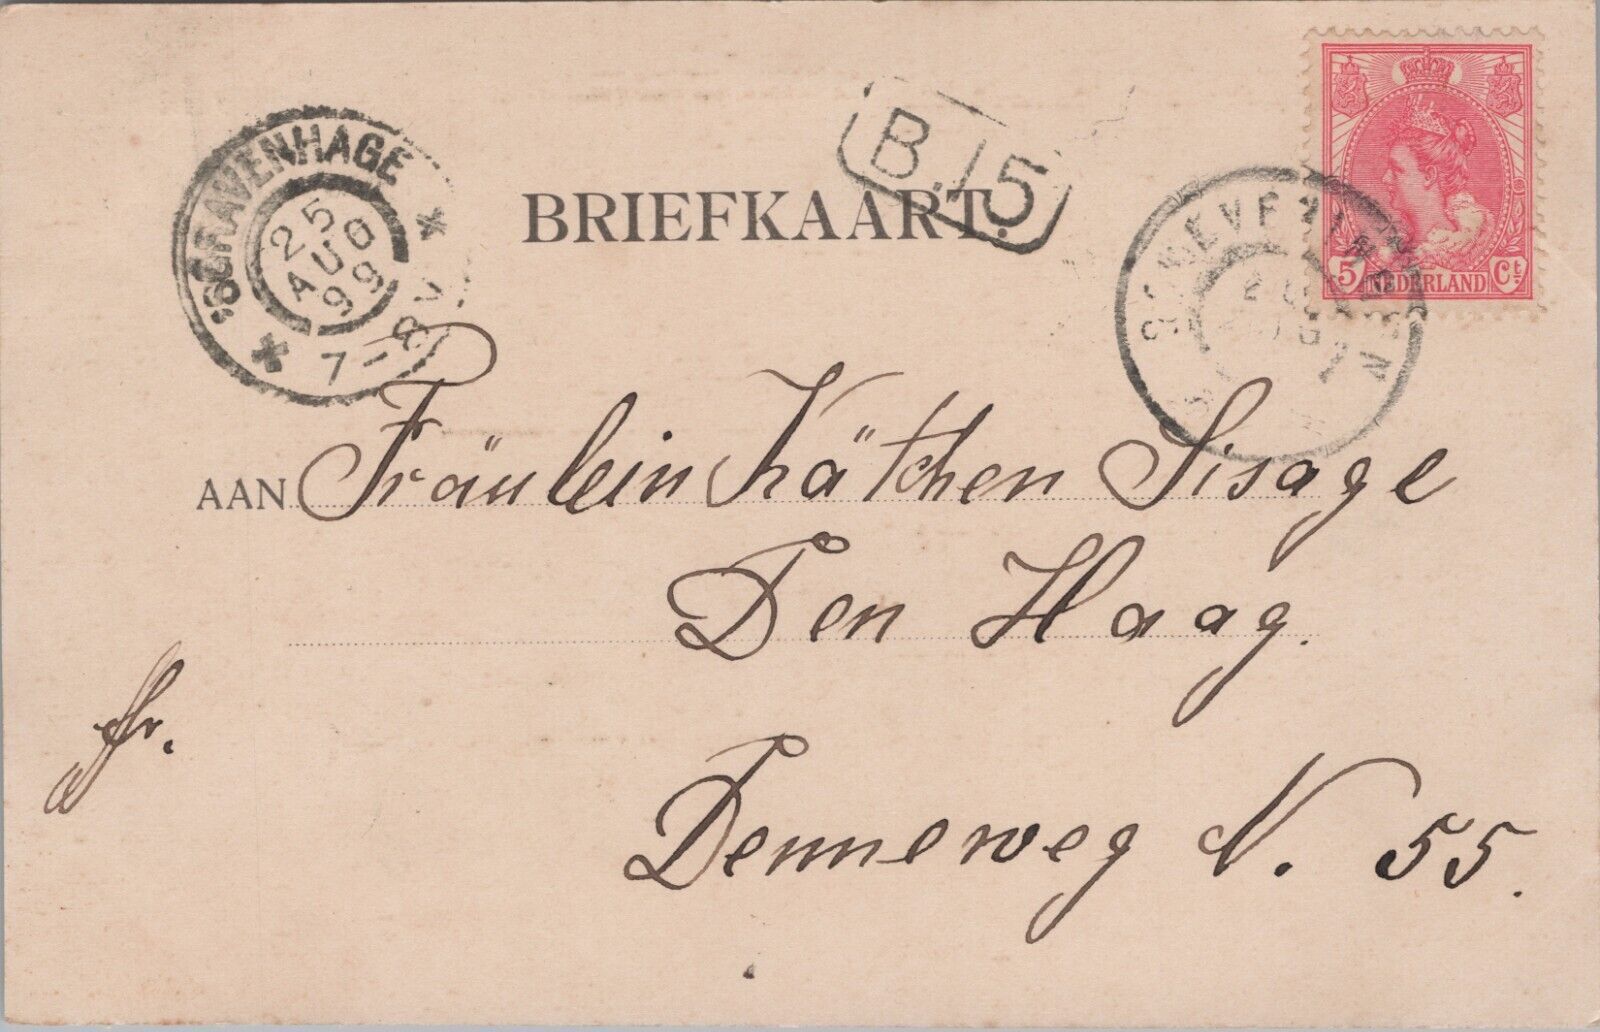 'SGRAVENHAGE
25
AUG
99
7-8V
B.15
BRIEFKAART.
SCHEVENINGEN
AUG
5 NEDERLAND Ct
AAN Fräulein Kätchen Sisage
Den Haag.
fr.
Denneweg N. 55.